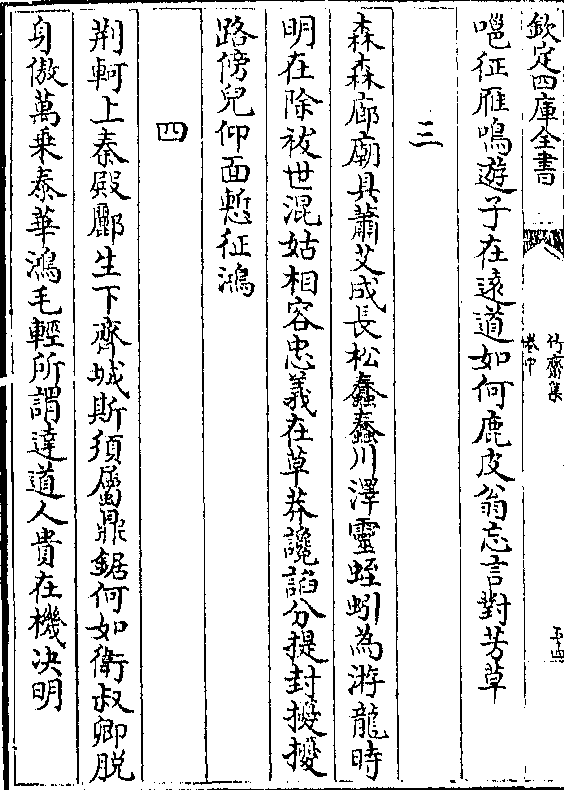 欽定四庫全書
竹齋集
卷中
唈征雁鳴遊子在遠道如何鹿皮翁忘言對芳草
三
森森廊廟具蕭艾成長松蠢蠢川澤靈蛭蚓為游龍時
明在除袚世混姑相容忠義在草莽讒謟分提封擾擾
路傍兒仰面慙征鴻
四
荆軻上秦殿酈生下齊城斯須屬鼎鋸何如衛叔卿脱
身傲萬乗泰華鴻毛輕所謂達道人貴在機決明